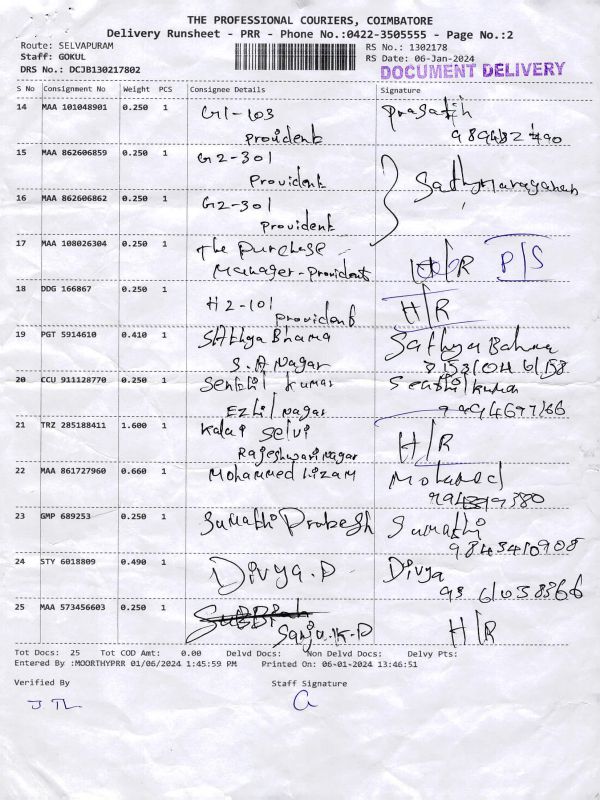 THE PROFESSIONAL COURIERS, COIMBATORE
Delivery Runsheet - PRR - Phone No.:0422-3505555 - Page No.:2
Route: SELVAPURAM RS No.: 1302178
Staff: GOKUL RS Date: 06-Jan-2024
DRS No.: DCJB130217802 DOCUMENT DELIVERY
S No Consignment No Weight PCS Consignee Details Signature
14 MAA 101048901 0.250 1 G1-103 Prasath
Provident
15 MAA 862606859 0.250 1 G2-301
Provident Sathynarayanan
16 MAA 862606862 0.250 1 G2-301
Provident
17 MAA 108026304 0.250 1 The Purchase
Manager-Provident H/R P/S
18 DDG 166867 0.250 1 H2-101 H/R
Provident
19 PGT 5914610 0.410 1 SAthya Bhama Sathya Bahma
S.A Nagar
20 CCU 911128770 0.250 1 Senthil kumar Senthil kumar
Ezhil Nagar
21 TRZ 285188411 1.600 1 Kalai Selvi H/R
Rajeshwari Nagar
22 MAA 861727960 0.660 1 Mohammed Nizam Mohamed
23 GMP 689253 0.250 1 Sumathi Prabesh Sumathi
9843410908
24 STY 6018809 0.490 1 Divya.P Divya
25 MAA 573456603 0.250 1 Sanju.K.P H/R
Tot Docs: 25 Tot COD Amt: 0.00 Delvd Docs: Non Delvd Docs: Delvy Pts:
Entered By :MOORTHYPRR 01/06/2024 1:45:59 PM Printed On: 06-01-2024 13:46:51
Verified By Staff Signature